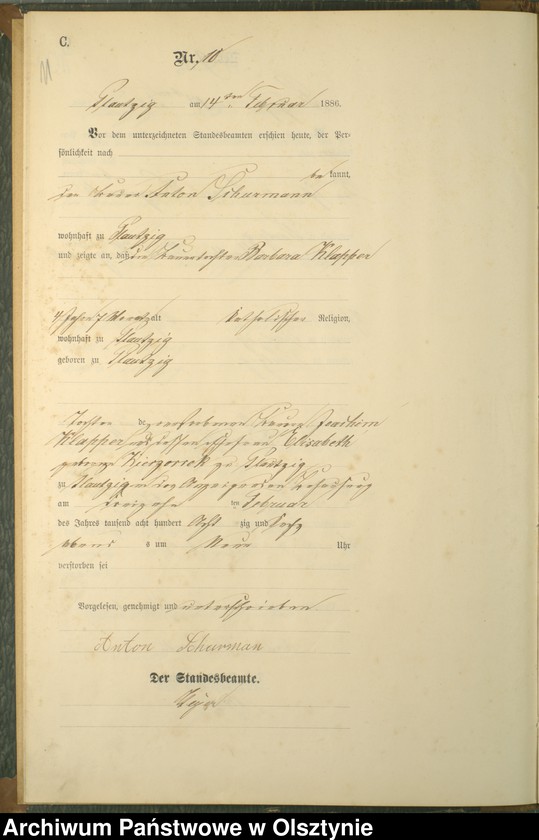 C.
Nr. 10
11
Plautzig am 14ten Februar 1886.
Vor dem unterzeichneten Standesbeamten erschien heute, der Per-
sönlichkeit nach
be kannt,
der Anton Schurmann
wohnhaft zu Plautzig
und zeigte an, daß die Barbara Klapper
4 Jahr 7 Monat alt katholischer Religion,
wohnhaft zu Plautzig
geboren zu Plautzig
Tochter des verstorbenen Joachim
Klapper und dessen Ehefrau Elisabeth
geborene zu Plautzig
zu Plautzig in des Anzeigenden Behausung
am ten Februar
des Jahres tausend acht hundert acht zig und sechs
abends s um neun Uhr
verstorben sei
Vorgelesen, genehmigt und unterschrieben
Anton Schurman
Der Standesbeamte.
Archiwum Państwowe w Olsztynie